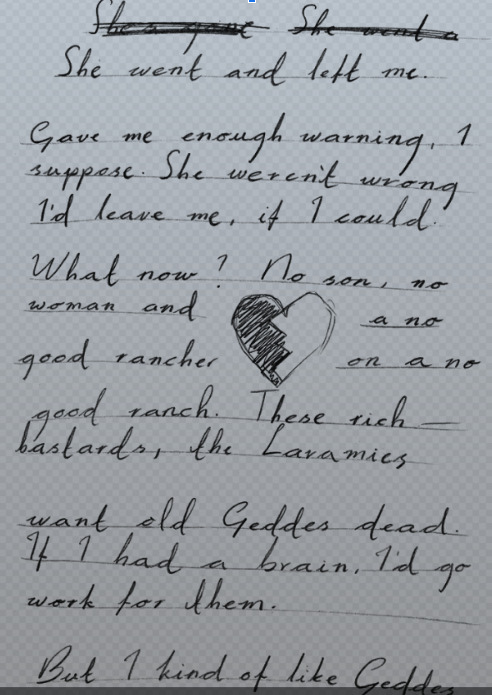 She's gone She went a
She went and left me.
Gave me enough warning, I
suppose. She weren't wrong
I'd leave me, if I could.
What now? No son, no
woman and a no
good rancher on a no
good ranch. These rich —
bastards, the Laramies
want old Geddes dead.
If I had a brain, I'd go
work for them.
But I kind of like Geddes